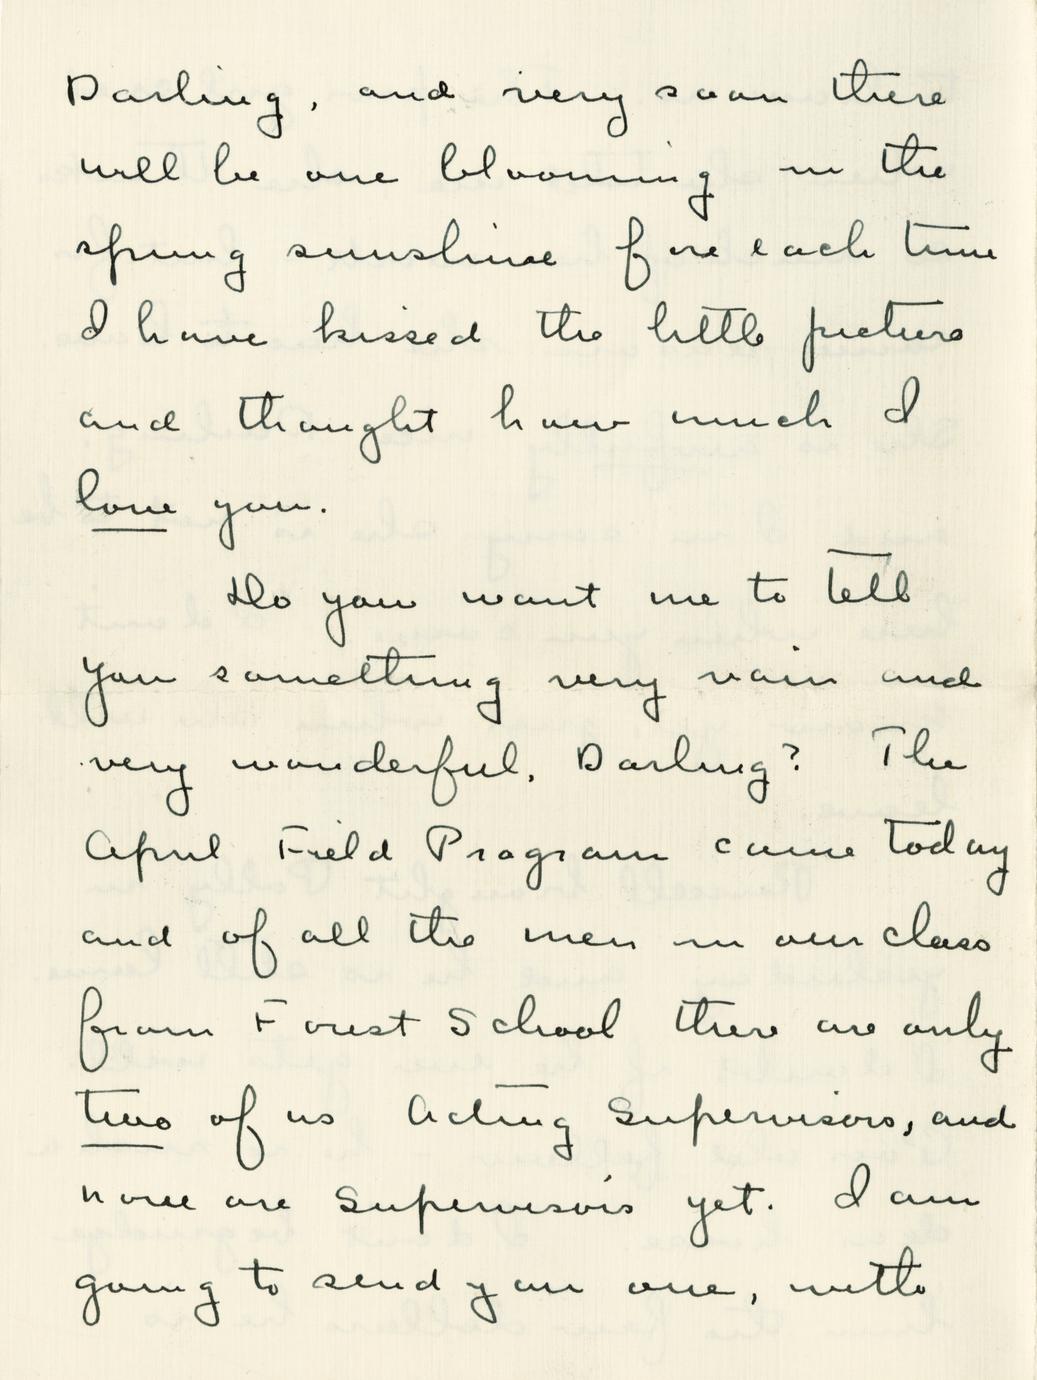 Darling, and very soon there
will be one blooming in the
spring sunshine for each time
I have kissed the little picture
and thought how much I
love you.
Do you want me to tell
you something very vain and
very wonderful, Darling? The
April Field Program came today
and of all the men in our class
from Forest School there are only
two of us Acting Supervisors, and
none are Supervisors yet. I am
going to send you one, with